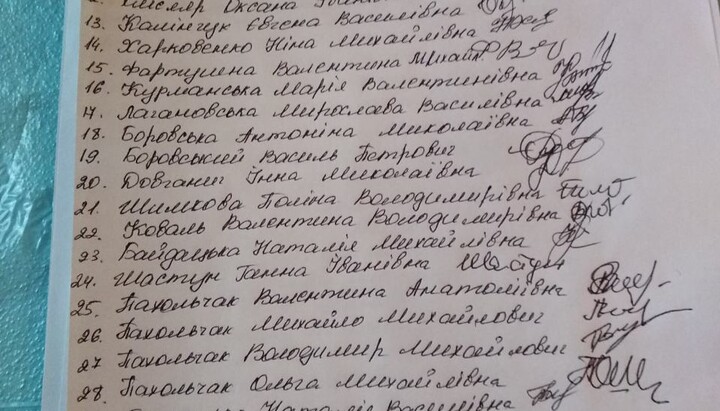 Оксана
13. Калінчук Євгена Василівна
14. Харковенко Ніна Михайлівна
15. Фартушна Валентина Михайл.
16. Курманська Марія Валентинівна
17. Лагановська Мирослава Василівна
18. Боровська Антоніна Миколаївна
19. Боровський Василь Петрович
20. Довганич Інна Миколаївна
21. Шимкова Поліна Володимирівна
22. Коваль Валентина Володимирівна
23. Байдацька Наталія Михайлівна
24. Шастун Ганна Іванівна Шастун
25. Пахольчак Валентина Анатоліївна
26. Пахольчак Михайло Михайлович
27. Пахольчак Володимир Михайлович
28. Пахольчак Ольга Михайлівна
Наталія Василівна